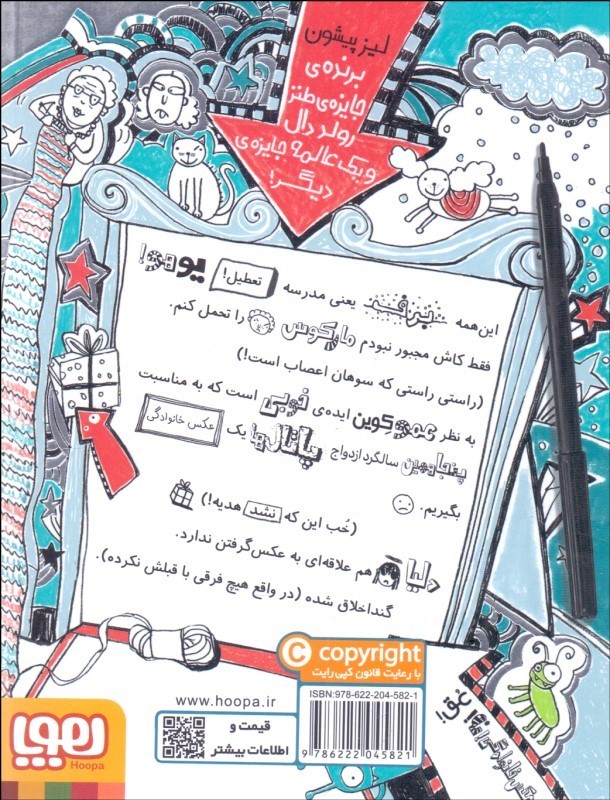 لیز پیشون
برنده‌ی
جایزه‌ی طنز
رولد دال
و یک عالمه جایزه‌ی
دیگر!
این‌همه برف یعنی مدرسه تعطیل! یوهو!
فقط کاش مجبور نبودم مارکوس را تحمل کنم.
(راستی راستی که سوهان اعصاب است!)
به نظر عمو کوین ایده‌ی خوبی است که به مناسبت
پنجاهمین سالگرد ازدواج پانال‌ها یک عکس خانوادگی
بگیریم.
(خُب این که نشد هدیه!)
دلیا هم علاقه‌ای به عکس‌گرفتن ندارد.
گنداخلاق شده (در واقع هیچ فرقی با قبلش نکرده).
copyright
با رعایت قانون کپی رایت
ISBN:978-622-204-582-1
9 786222 045821
www.hoopa.ir
قیمت و
اطلاعات بیشتر
هوپا
Hoopa
عکس خانوادگی
عُق!